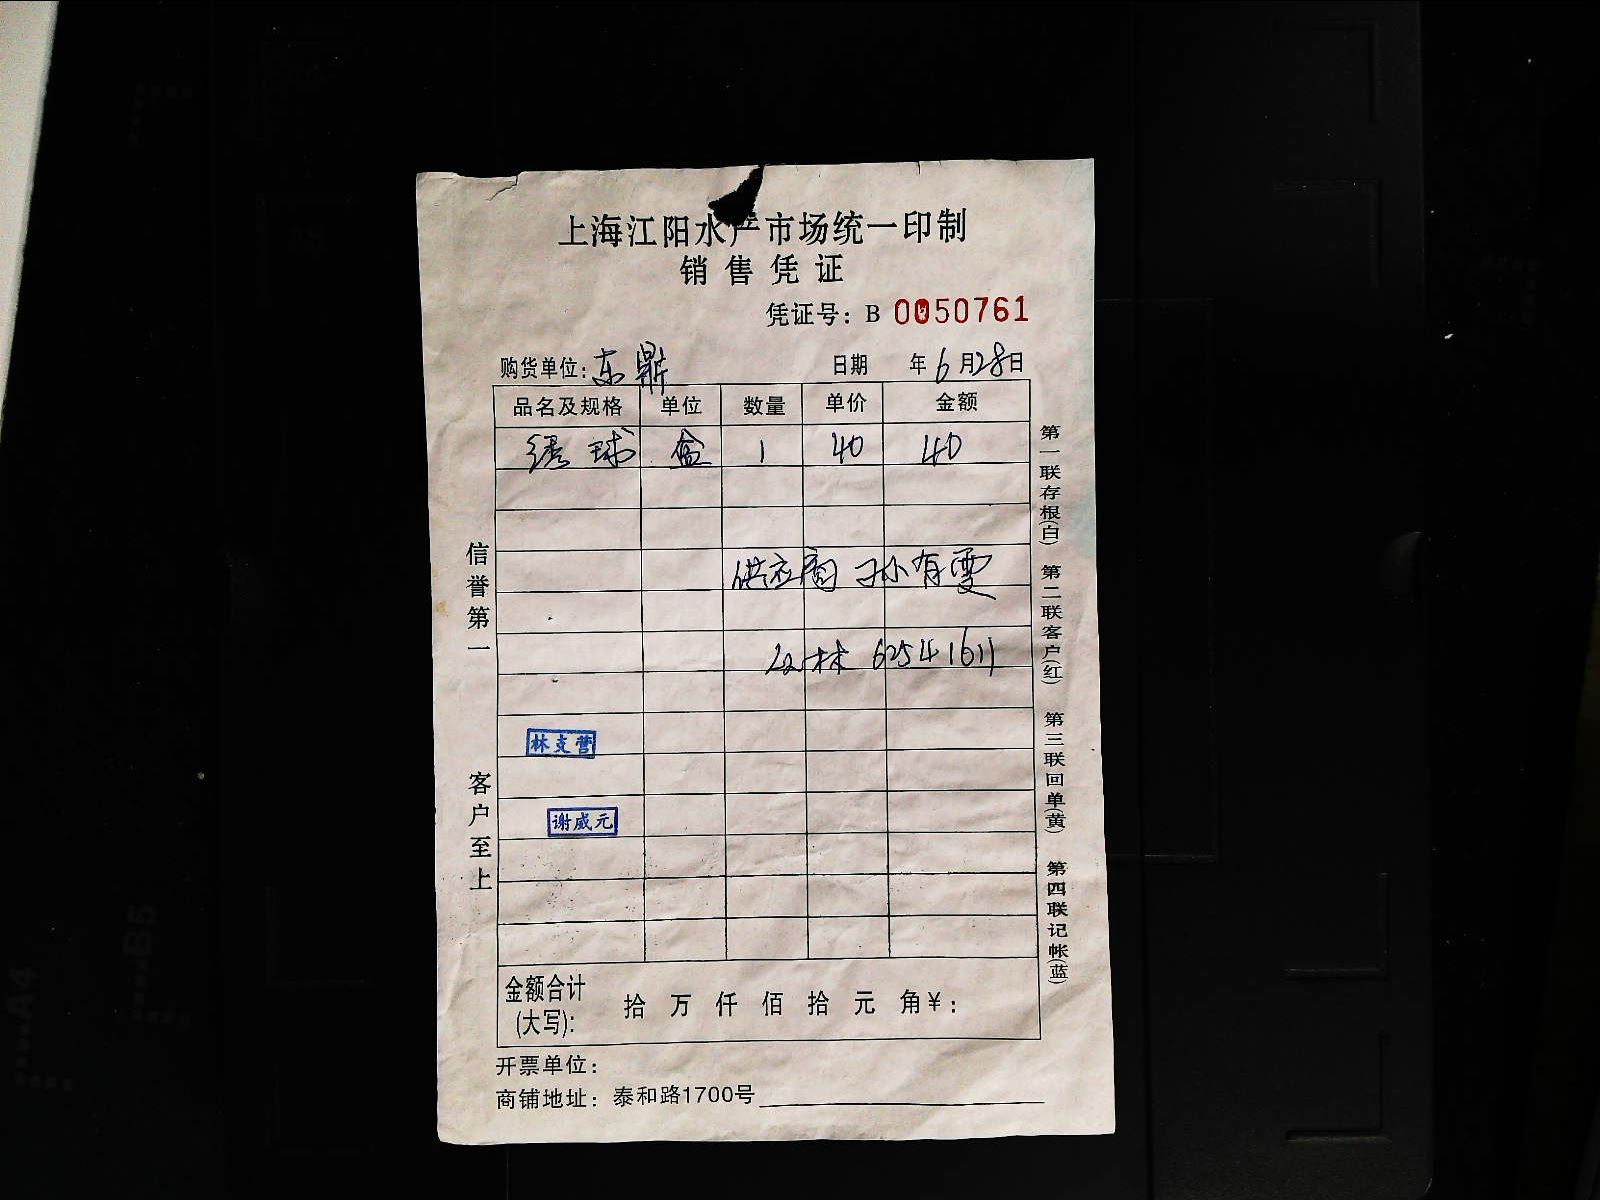 上海江阳水产市场统一印制
销售凭证
凭证号：B 0050761
购货单位：东鼎 日期 年6月28日
品名及规格 单位 数量 单价 金额
绣球 盒 1 40 40
供应商 孙有雯
林 62541611
林支营
谢威元
金额合计
(大写)： 拾 万 仟 佰 拾 元 角¥：
开票单位：
商铺地址：泰和路1700号
信誉第一 客户至上
第一联存根(白) 第二联客户(红) 第三联回单(黄) 第四联记帐(蓝)
A4
B5